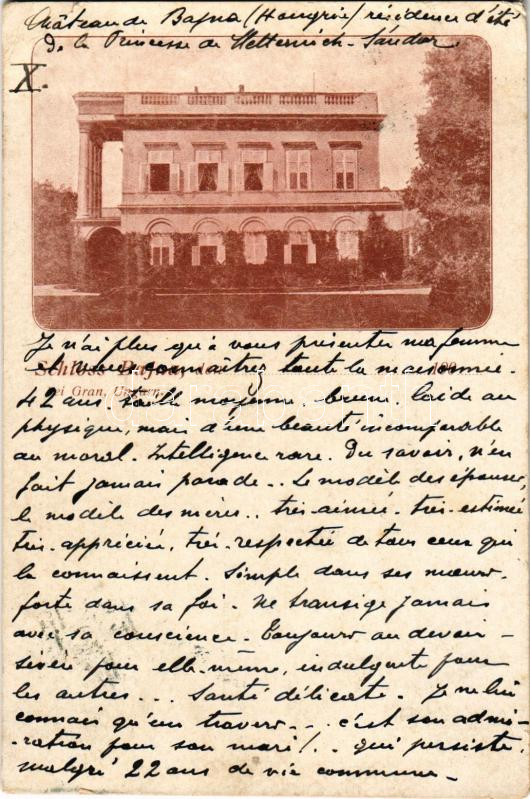 Château de Bajna (Hongrie) résidence d'été
de la Princesse de Metternich-Sándor
X.
Je n'ai plus qu'à vous présenter ma femme
et vous connaîtrez toute la maisonnée.
Schloss Bajna, den 189
bei Gran, Ungarn.
42 ans taille moyenne. brune. laide au
physique, mais d'une beauté incomparable
au moral. Intelligence rare. Du savoir, n'en
fait jamais parade... Le modèle des épouses,
le modèle des mères.. très-aimée. très-estimée
très-appréciée, très-respectée de tous ceux qui
la connaissent. Simple dans ses mœurs.
forte dans sa foi. Ne transige jamais
avec sa conscience. Toujours au devoir –
sévère pour elle-même, indulgente pour
les autres... Santé délicate. Je ne lui
connais qu'un travers... c'est son admi-
-ration pour son mari!.. qui persiste
malgré 22 ans de vie commune –